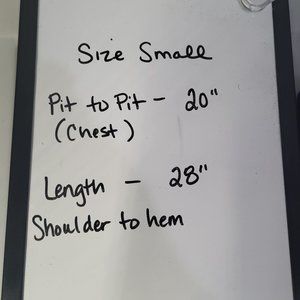 Size Small
Pit to Pit - 20"
(Chest)
Length - 28"
Shoulder to hem